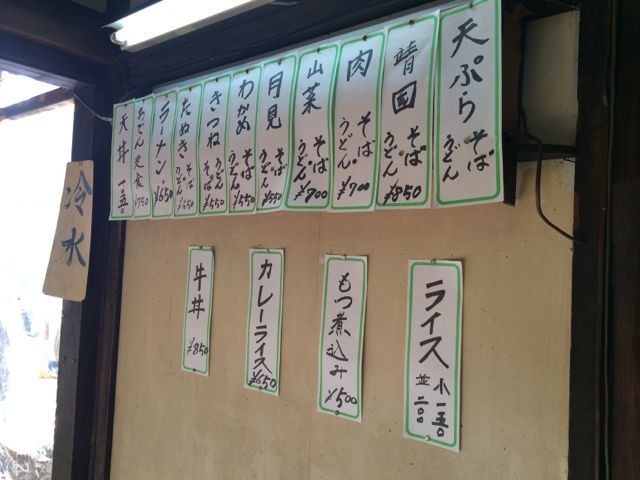 天ぷら そば うどん
靖国 そば うどん ¥850
肉 そば うどん ¥700
山菜 そば うどん ¥700
月見 そば うどん ¥550
わかめ そば うどん ¥550
きつね そば うどん ¥550
たぬき そば うどん ¥550
ラーメン ¥650
おでん定食 ¥750
天丼
冷水
ライス 小 一五〇 並 二〇〇
もつ煮込み ¥500
カレーライス ¥650
牛丼 ¥850